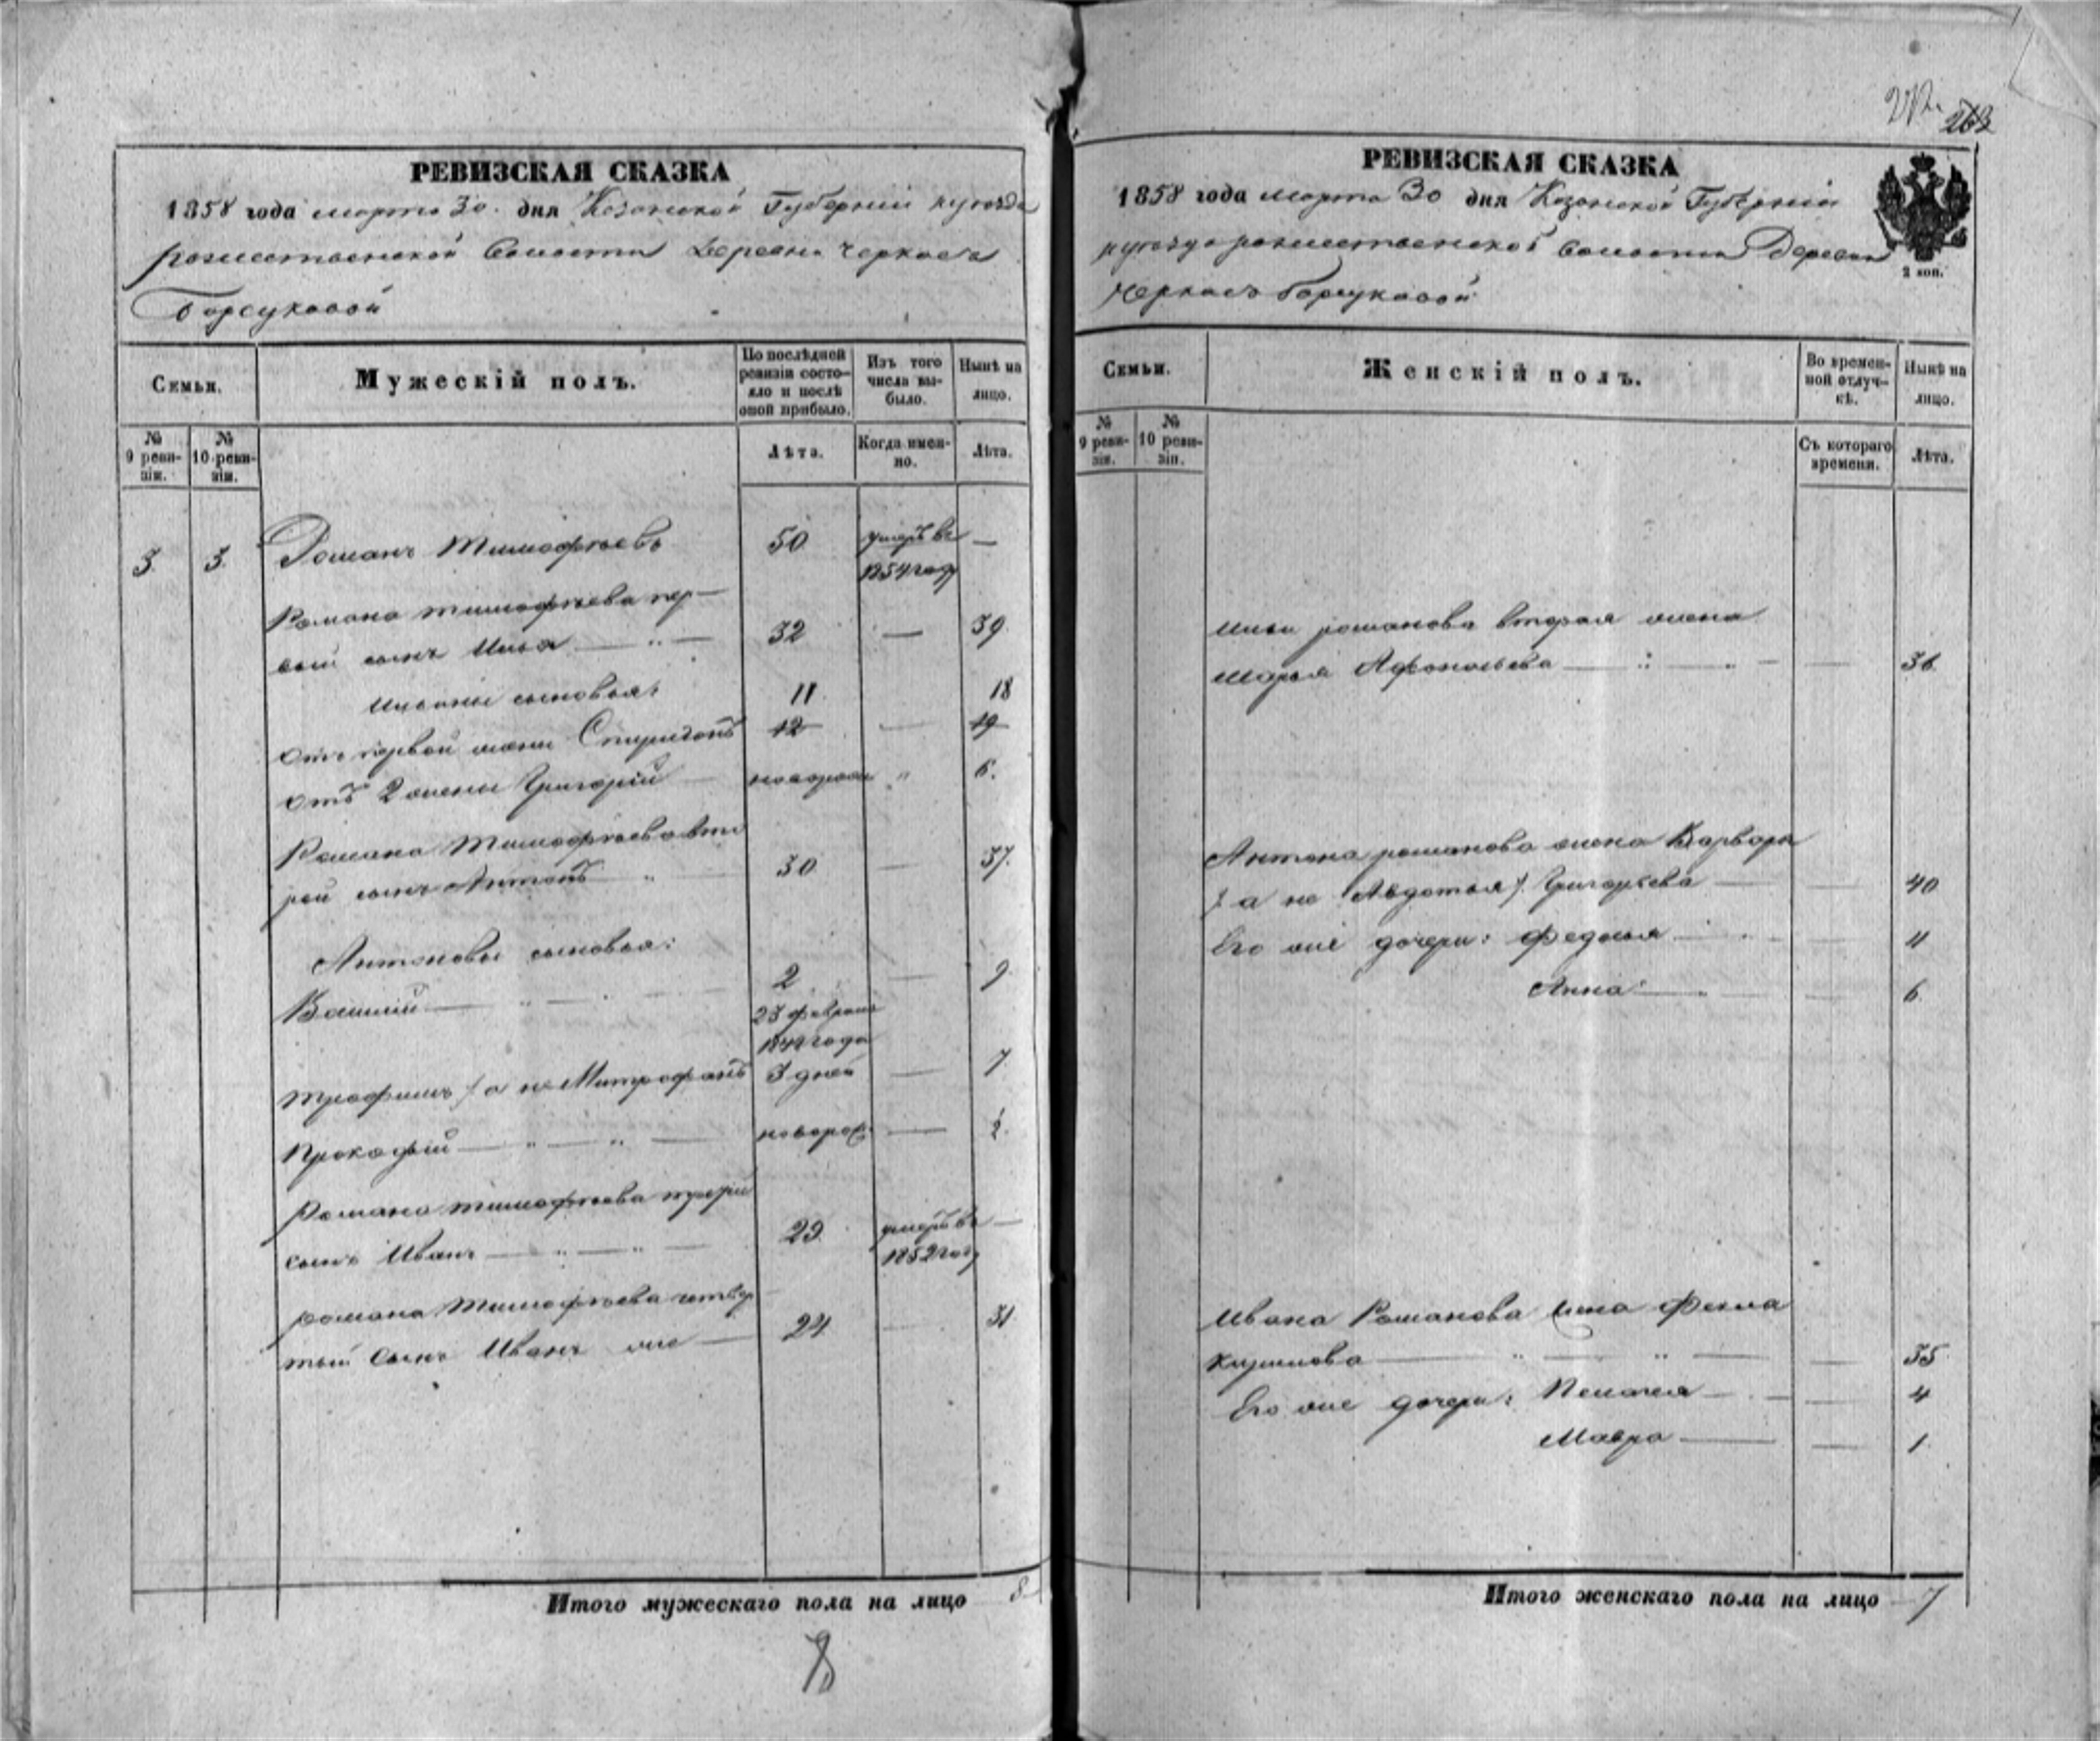 РЕВИЗСКАЯ СКАЗКА
1858 года марта 30. дня Казанской Губерніи
волости Деревни Черкасъ
Борсуковой
Семьи.
Мужескій полъ.
По послѣдней ревизіи состояло и послѣ оной прибыло.
Изъ того числа выбыло.
Нынѣ на лицо.
№ 9 ревизіи.
№ 10 ревизіи.
Лѣта.
Когда именно.
Лѣта.
3. 3. Романъ Тимофѣевъ 50 умеръ въ —
1854 году
Романа Тимофѣева пер-
вый сынъ Илья — " — 32 — 39.
Ильины сыновья: 11 18
отъ первой жены Спиридонъ 12 — 19
отъ 2 жены Григорій новорож " 6.
Романа Тимофѣева вто
рой сынъ Антонъ " — 30 — 37.
Антоновы сыновья:
Василій — " — 2 — 9
23 февраля
года
Трофимъ / а не Митрофанъ 3 дней — 7
Прокофій — " — " — новорож — 2.
Романа Тимофѣева
сынъ Иванъ — " — " — 29. умеръ въ —
1852 году
Романа Тимофѣева четвер
тый Сынъ Иванъ же — 24 — 31
Итого мужескаго пола на лицо 8
8
263
РЕВИЗСКАЯ СКАЗКА
1858 года марта 30 дня Казанской Губерніи
волости Деревни
Черкасъ Борсуковой
2 коп.
Семьи.
Женскій полъ.
Во временной отлучкѣ.
Нынѣ на лицо.
№ 9 ревизіи.
№ 10 ревизіи.
Съ котораго времени.
Лѣта.
Ильи романова вторая жена
Марья Афонасьева — " — 36.
Антона романова жена Варвара
/ а не Авдотья /. Григорьева — 40
Его же дочери: Федосья — 11
Анна — 6
Ивана Романова жена Фекла
Кирилова — " — " — 35
Его же дочери: Пелагея — 4
Мавра — 1.
Итого женскаго пола на лицо 7